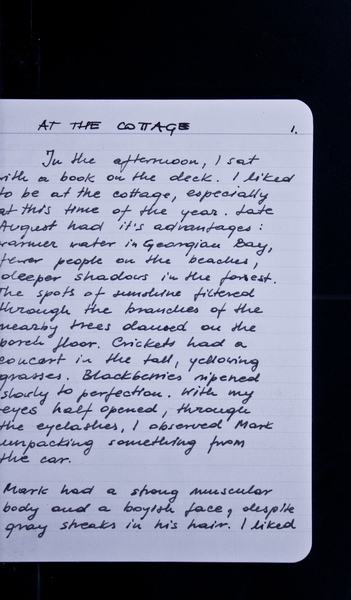 AT THE COTTAGE 1.
In the afternoon, I sat
with a book on the deck. I liked
to be at the cottage, especially
at this time of the year. Late
August had it's advantages:
warmer water in Georgian Bay,
fewer people on the beaches,
deeper shadows in the forrest.
The spots of sunshine filtered
through the branches of the
nearby trees danced on the
porch floor. Crickets had a
concert in the tall, yellowing
grasses. Blackberries ripened
slowly to perfection. With my
eyes half opened, through
the eyelashes, I observed Mark
unpacking something from
the car.
Mark had a strong muscular
body and a boyish face, despite
gray streaks in his hair. I liked